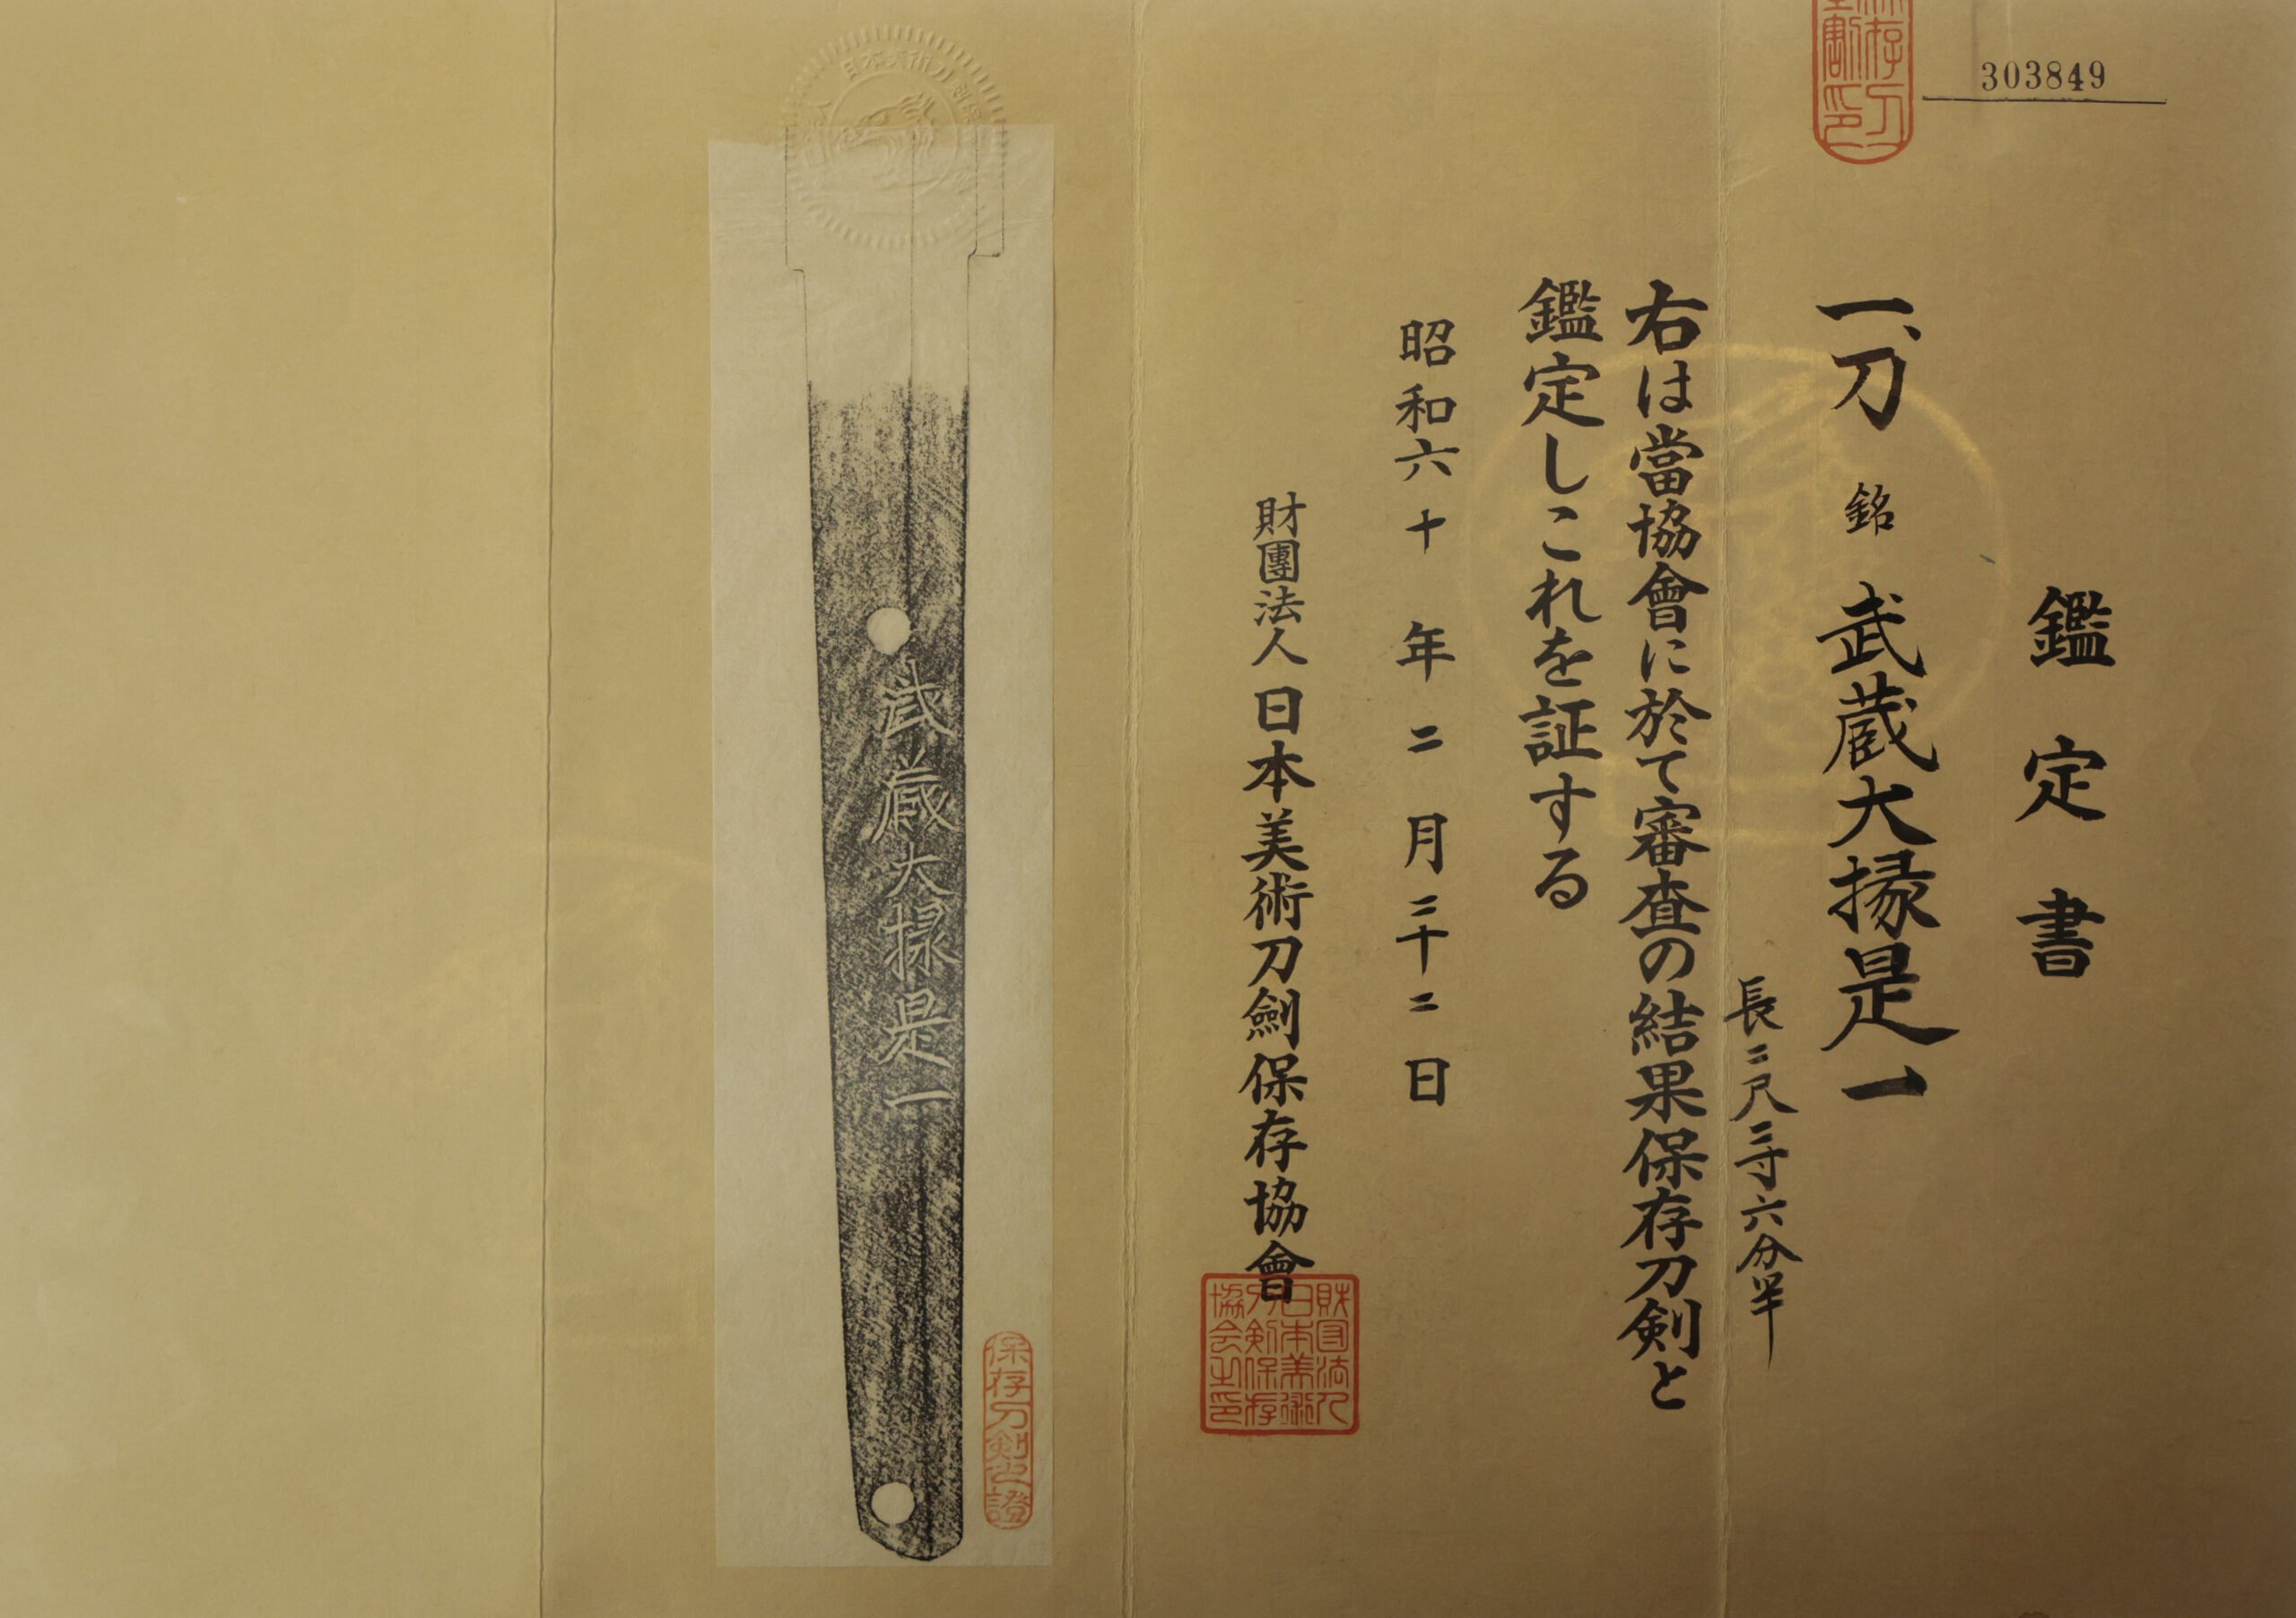 303849
鑑定書
一、刀 銘 武蔵大掾是一
長二尺三寸六分半
右は當協會に於て審査の結果保存刀剣と
鑑定しこれを証する
昭和六十年二月二十二日
財團法人日本美術刀劍保存協會
財団法人
日本美術
刀剣保存
協会之印
武蔵大掾是一
保存刀剣之證